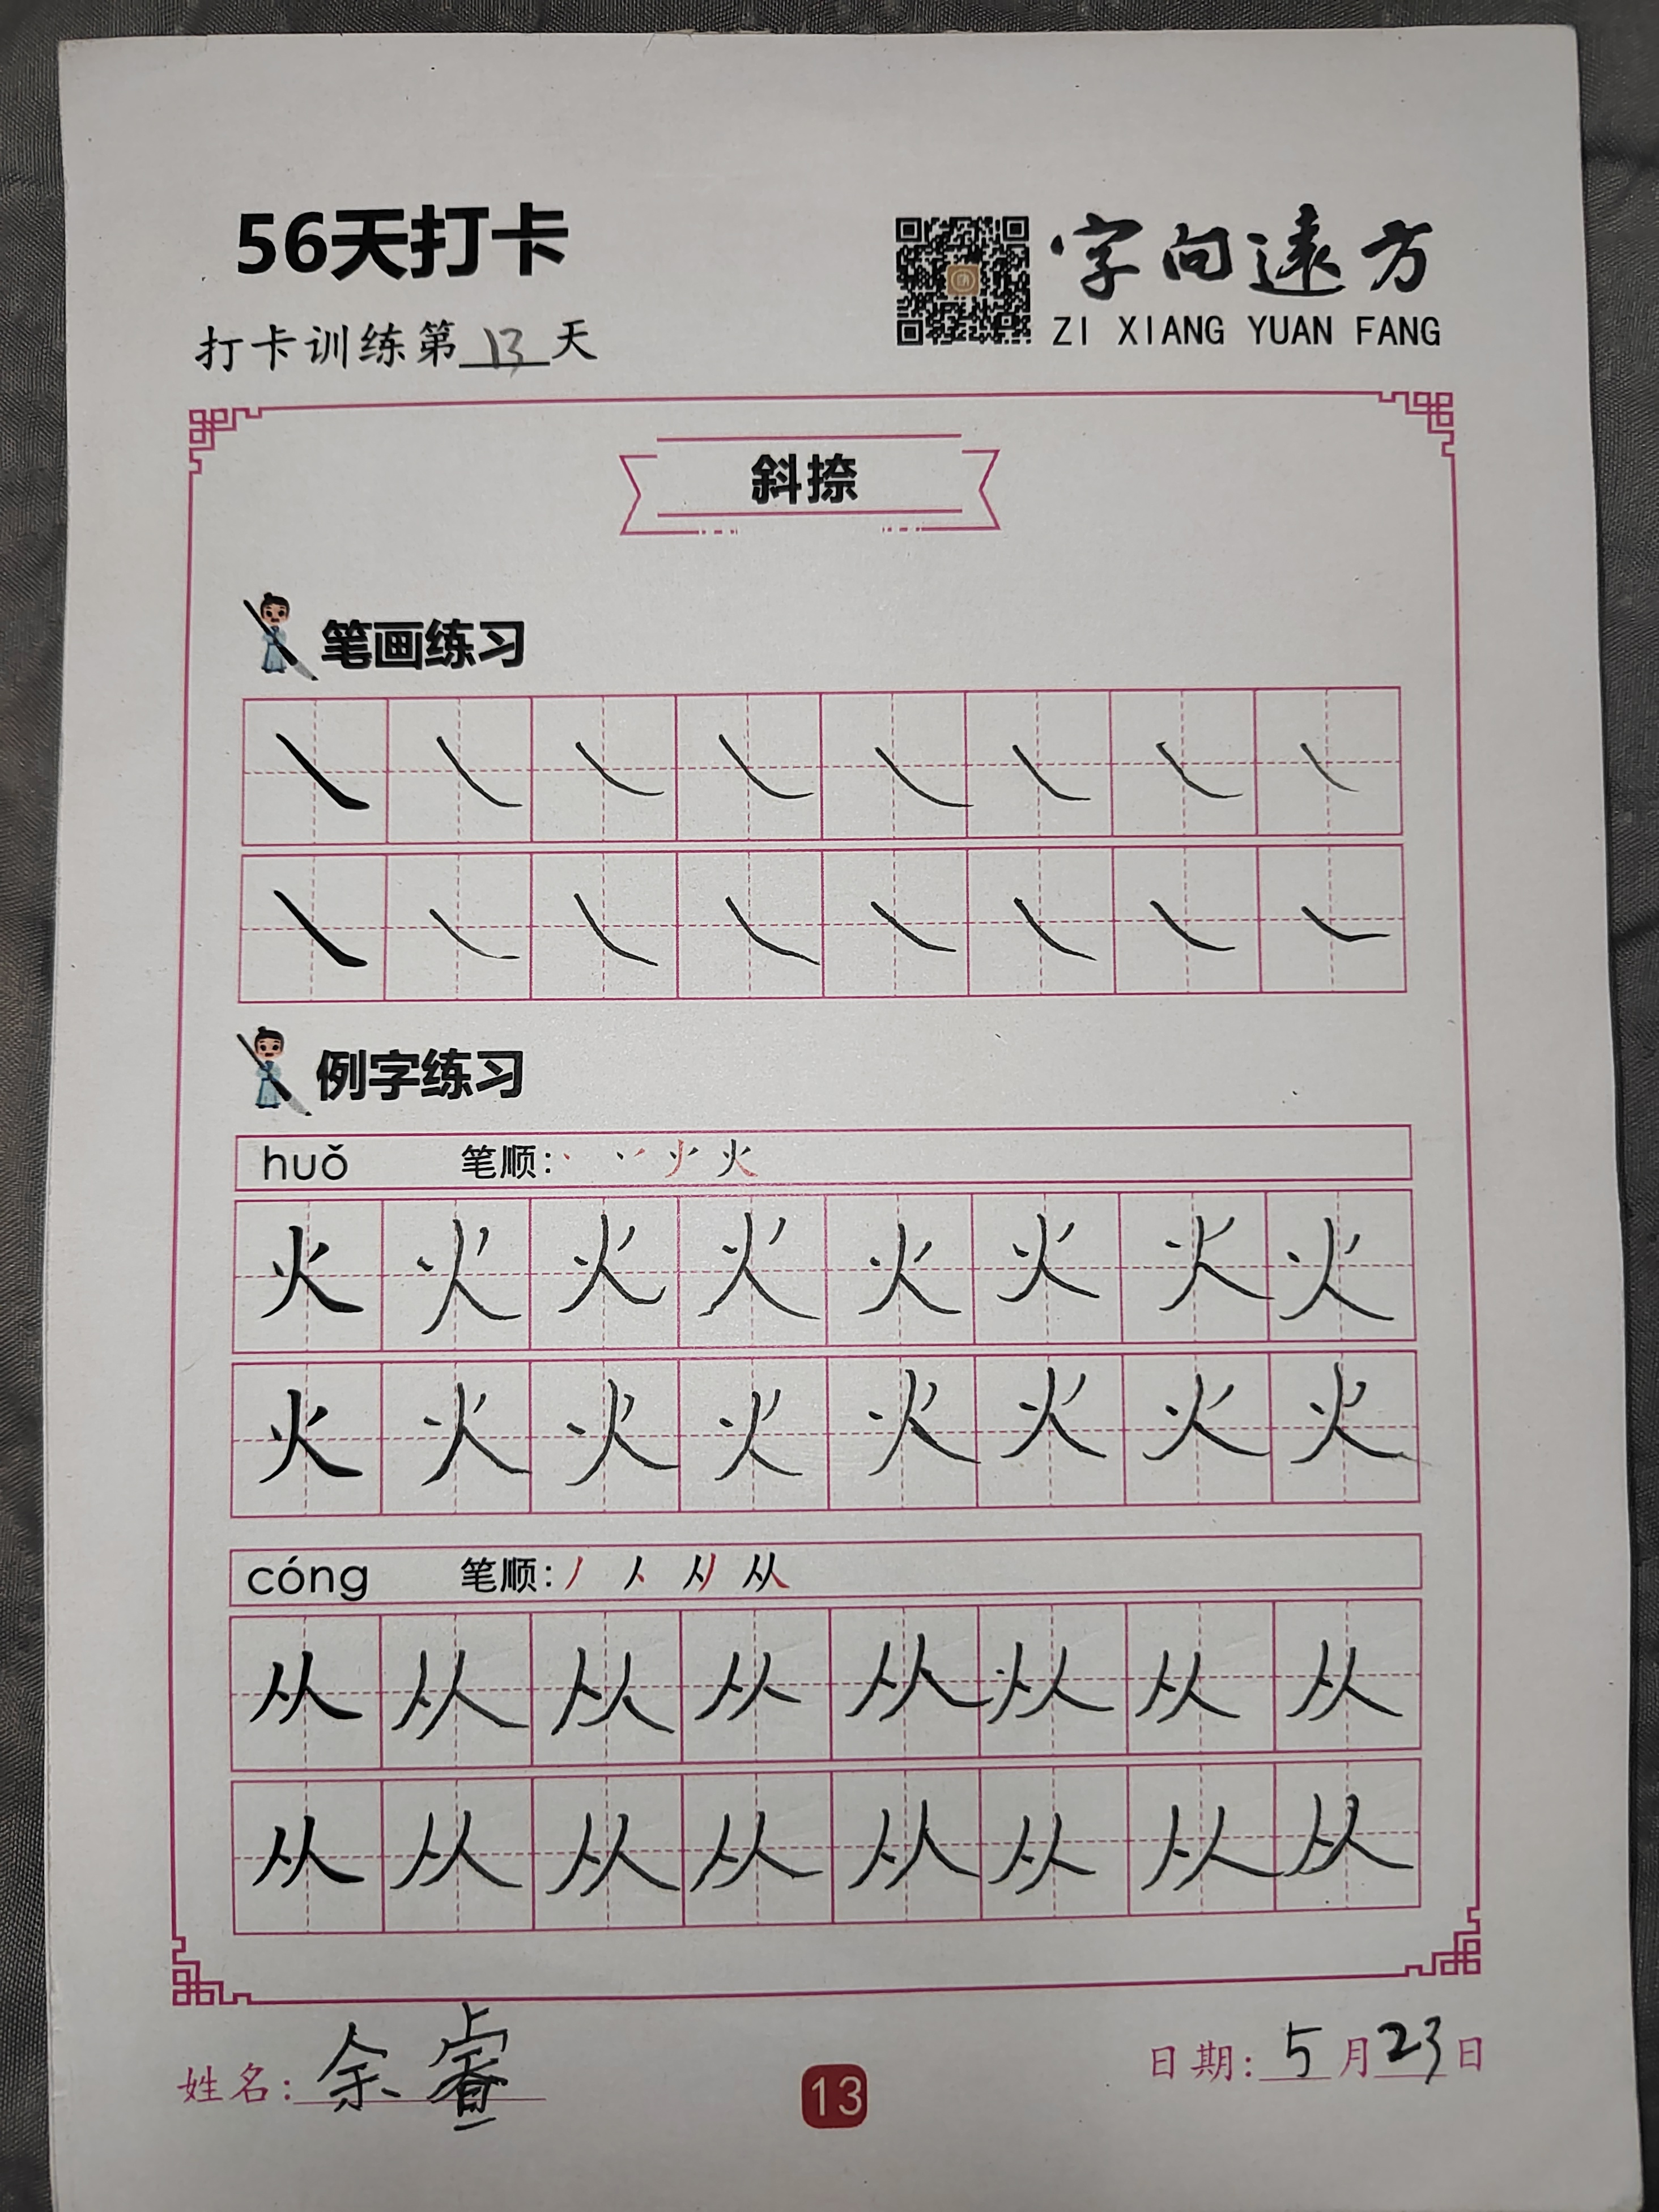 56天打卡
字向遠方
ZI XIANG YUAN FANG
打卡训练第13天
斜捺
笔画练习
例字练习
huǒ 笔顺:
火 火 火 火 火 火 火 火
火 火 火 火 火 火 火 火
cóng 笔顺:
从 从 从 从 从 从 从 从
从 从 从 从 从 从 从 从
姓名: 余睿
13
日期: 5月23日